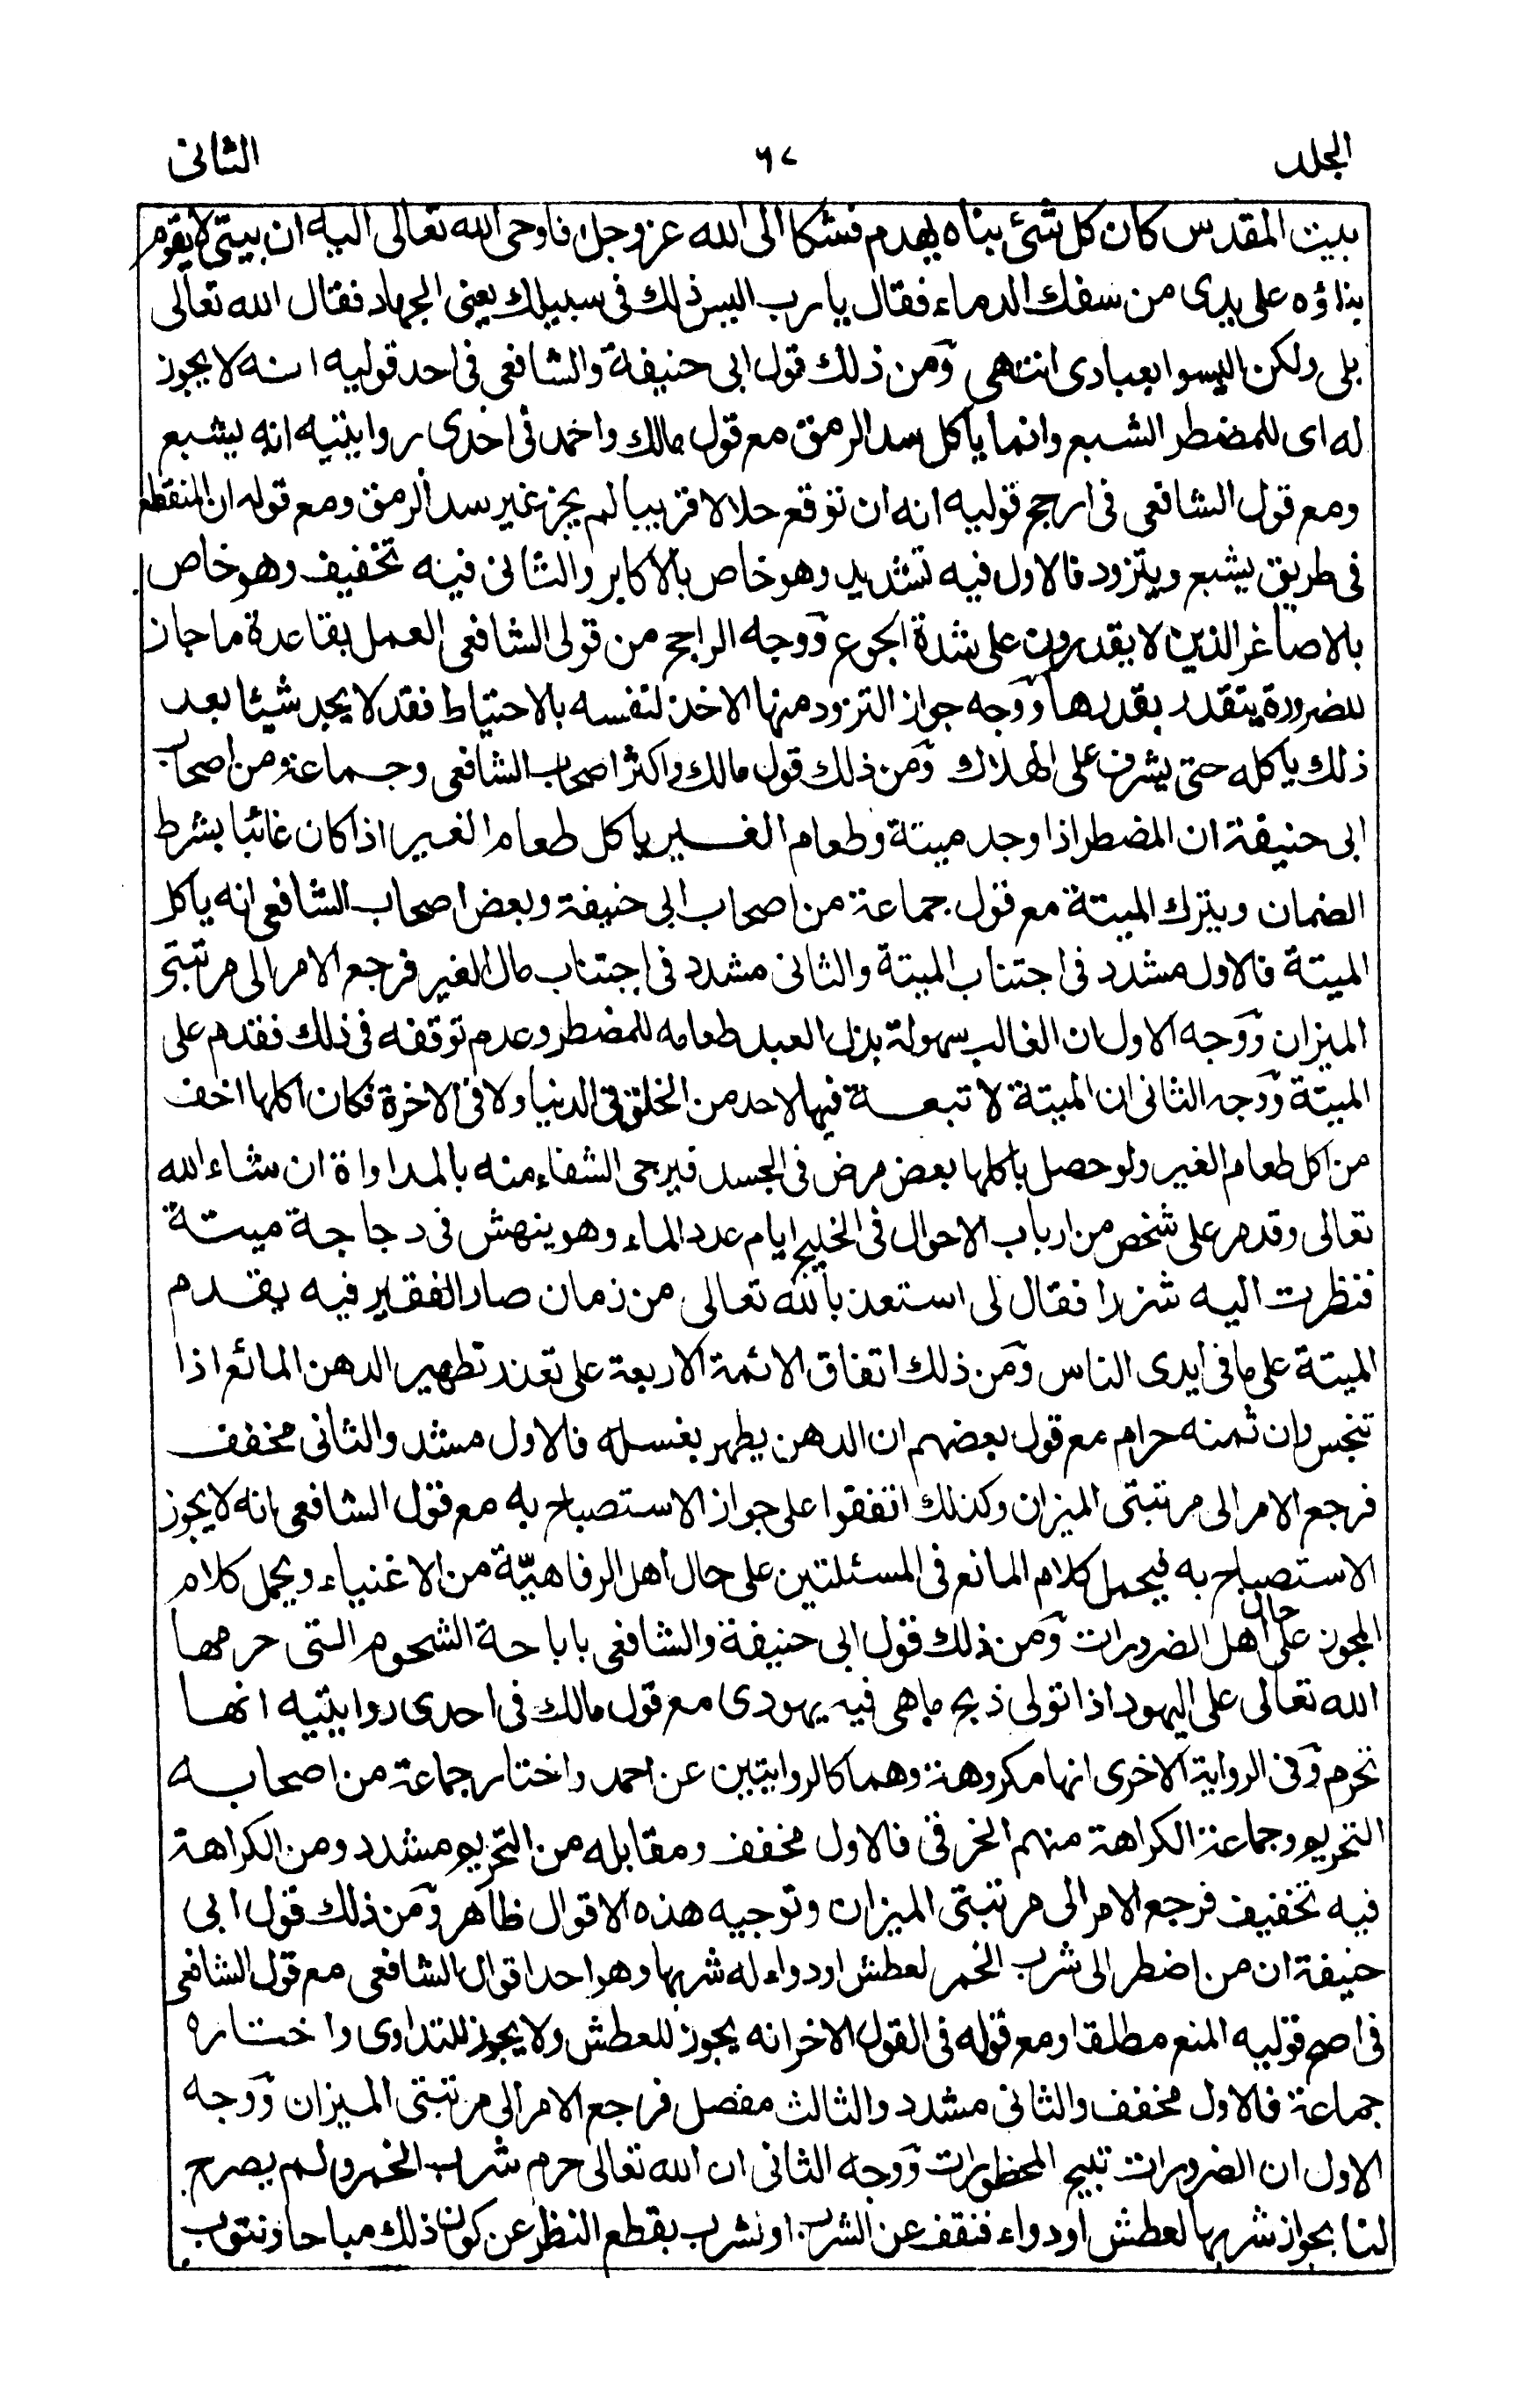 الجلد ٦٧ الثانى
بيت المقدس كان كل شئ بناه يهدم فشكا الى الله عزوجل فاوحى الله تعالى اليه ان بيتى لا يقوم
بناؤه على يدى من سفك الدماء فقال يا رب اليس ذلك فى سبيلك يعنى الجهاد فقال الله تعالى
بلى ولكن اليسوا بعبادى انتهى ومن ذلك قول ابى حنيفة والشافعى فى احد قوليه انه لا يجوز
له اى للمضطر الشبع وانما ياكل سد الرمق مع قول مالك واحمد فى احدى روايتيه انه يشبع
ومع قول الشافعى فى ارجح قوليه انه ان توقع حلالا قريبا لم يجز غير سد الرمق ومع قوله ان المنقطع
فى طريق يشبع ويتزود فالاول فيه تشديد وهو خاص بالاكابر والثانى فيه تخفيف وهو خاص
بالاصاغر الذين لا يقدرون على شدة الجوع ووجه الراجح من قولى الشافعى العمل بقاعدة ما جاز
للضرورة يتقدر بقدرها ووجه جواز التزود منها الاخذ لنفسه بالاحتياط فقد لا يجد شيئا بعد
ذلك ياكله حتى يشرف على الهلاك ومن ذلك قول مالك واكثر اصحاب الشافعى وجماعة من اصحاب
ابى حنيفة ان المضطر اذا وجد ميتة وطعام الغير ياكل طعام الغير اذا كان غائبا بشرط
الضمان ويترك الميتة مع قول جماعة من اصحاب ابى حنيفة وبعض اصحاب الشافعى انه ياكل
الميتة فالاول مشدد فى اجتناب الميتة والثانى مشدد فى اجتناب مال الغير فرجع الامر الى مرتبتى
الميزان ووجه الاول ان الغالب سهولة بذل العبد طعامه للمضطر وعدم توقفه فى ذلك فقدم على
الميتة ووجه الثانى ان الميتة لا تبعة فيها لاحد من الخلق فى الدنيا ولا فى الاخرة فكان اكلها اخف
من اكل طعام الغير ولو حصل باكلها بعض مرض فى الجسد فيرجى الشفاء منه بالمداواة ان شاء الله
تعالى وقدم على شخص من ارباب الاحوال فى الخليج ايام عدد الماء وهو ينهش فى دجاجة ميتة
فنظرت اليه شزرا فقال لى استعذ بالله تعالى من زمان صار الفقير فيه يقدم
الميتة على ما فى ايدى الناس ومن ذلك اتفاق الائمة الاربعة على تعذر تطهير الدهن المائع اذا
تنجس وان ثمنه حرام مع قول بعضهم ان الدهن يطهر بغسله فالاول مشدد والثانى مخفف
فرجع الامر الى مرتبتى الميزان وكذلك اتفقوا على جواز الاستصباح به مع قول الشافعى انه لا يجوز
الاستصباح به فيحمل كلام المانع فى المسئلتين على حال اهل الرفاهيّة من الاغنياء ويحمل كلام
المجوز على حال اهل الضرورات ومن ذلك قول ابى حنيفة والشافعى باباحة الشحوم التى حرمها
الله تعالى على اليهود اذا تولى ذبح ماهى فيه يهودى مع قول مالك فى احدى روايتيه انها
تحرم وفى الرواية الاخرى انها مكروهة وهما كالروايتين عن احمد واختار جماعة من اصحابه
التحريم وجماعة الكراهة منهم الخرقى فالاول مخفف ومقابله من التحريم مشدد ومن الكراهة
فيه تخفيف فرجع الامر الى مرتبتى الميزان وتوجيه هذه الاقوال ظاهر ومن ذلك قول ابى
حنيفة ان من اضطر الى شرب الخمر لعطش او دواء له شربها وهو احد اقوال الشافعى مع قول الشافعى
فى اصح قوليه المنع مطلقا ومع قوله فى القول الاخر انه يجوز للعطش ولا يجوز للتداوى واختاره
جماعة فالاول مخفف والثانى مشدد والثالث مفصل فرجع الامر الى مرتبتى الميزان ووجه
الاول ان الضرورات تبيح المحظورات ووجه الثانى ان الله تعالى حرم شراب الخمر ولم يصرح
لنا بجواز شربها لعطش او دواء فنقف عن الشرب او نشرب بقطع النظر عن كون ذلك مباحا ونتوب